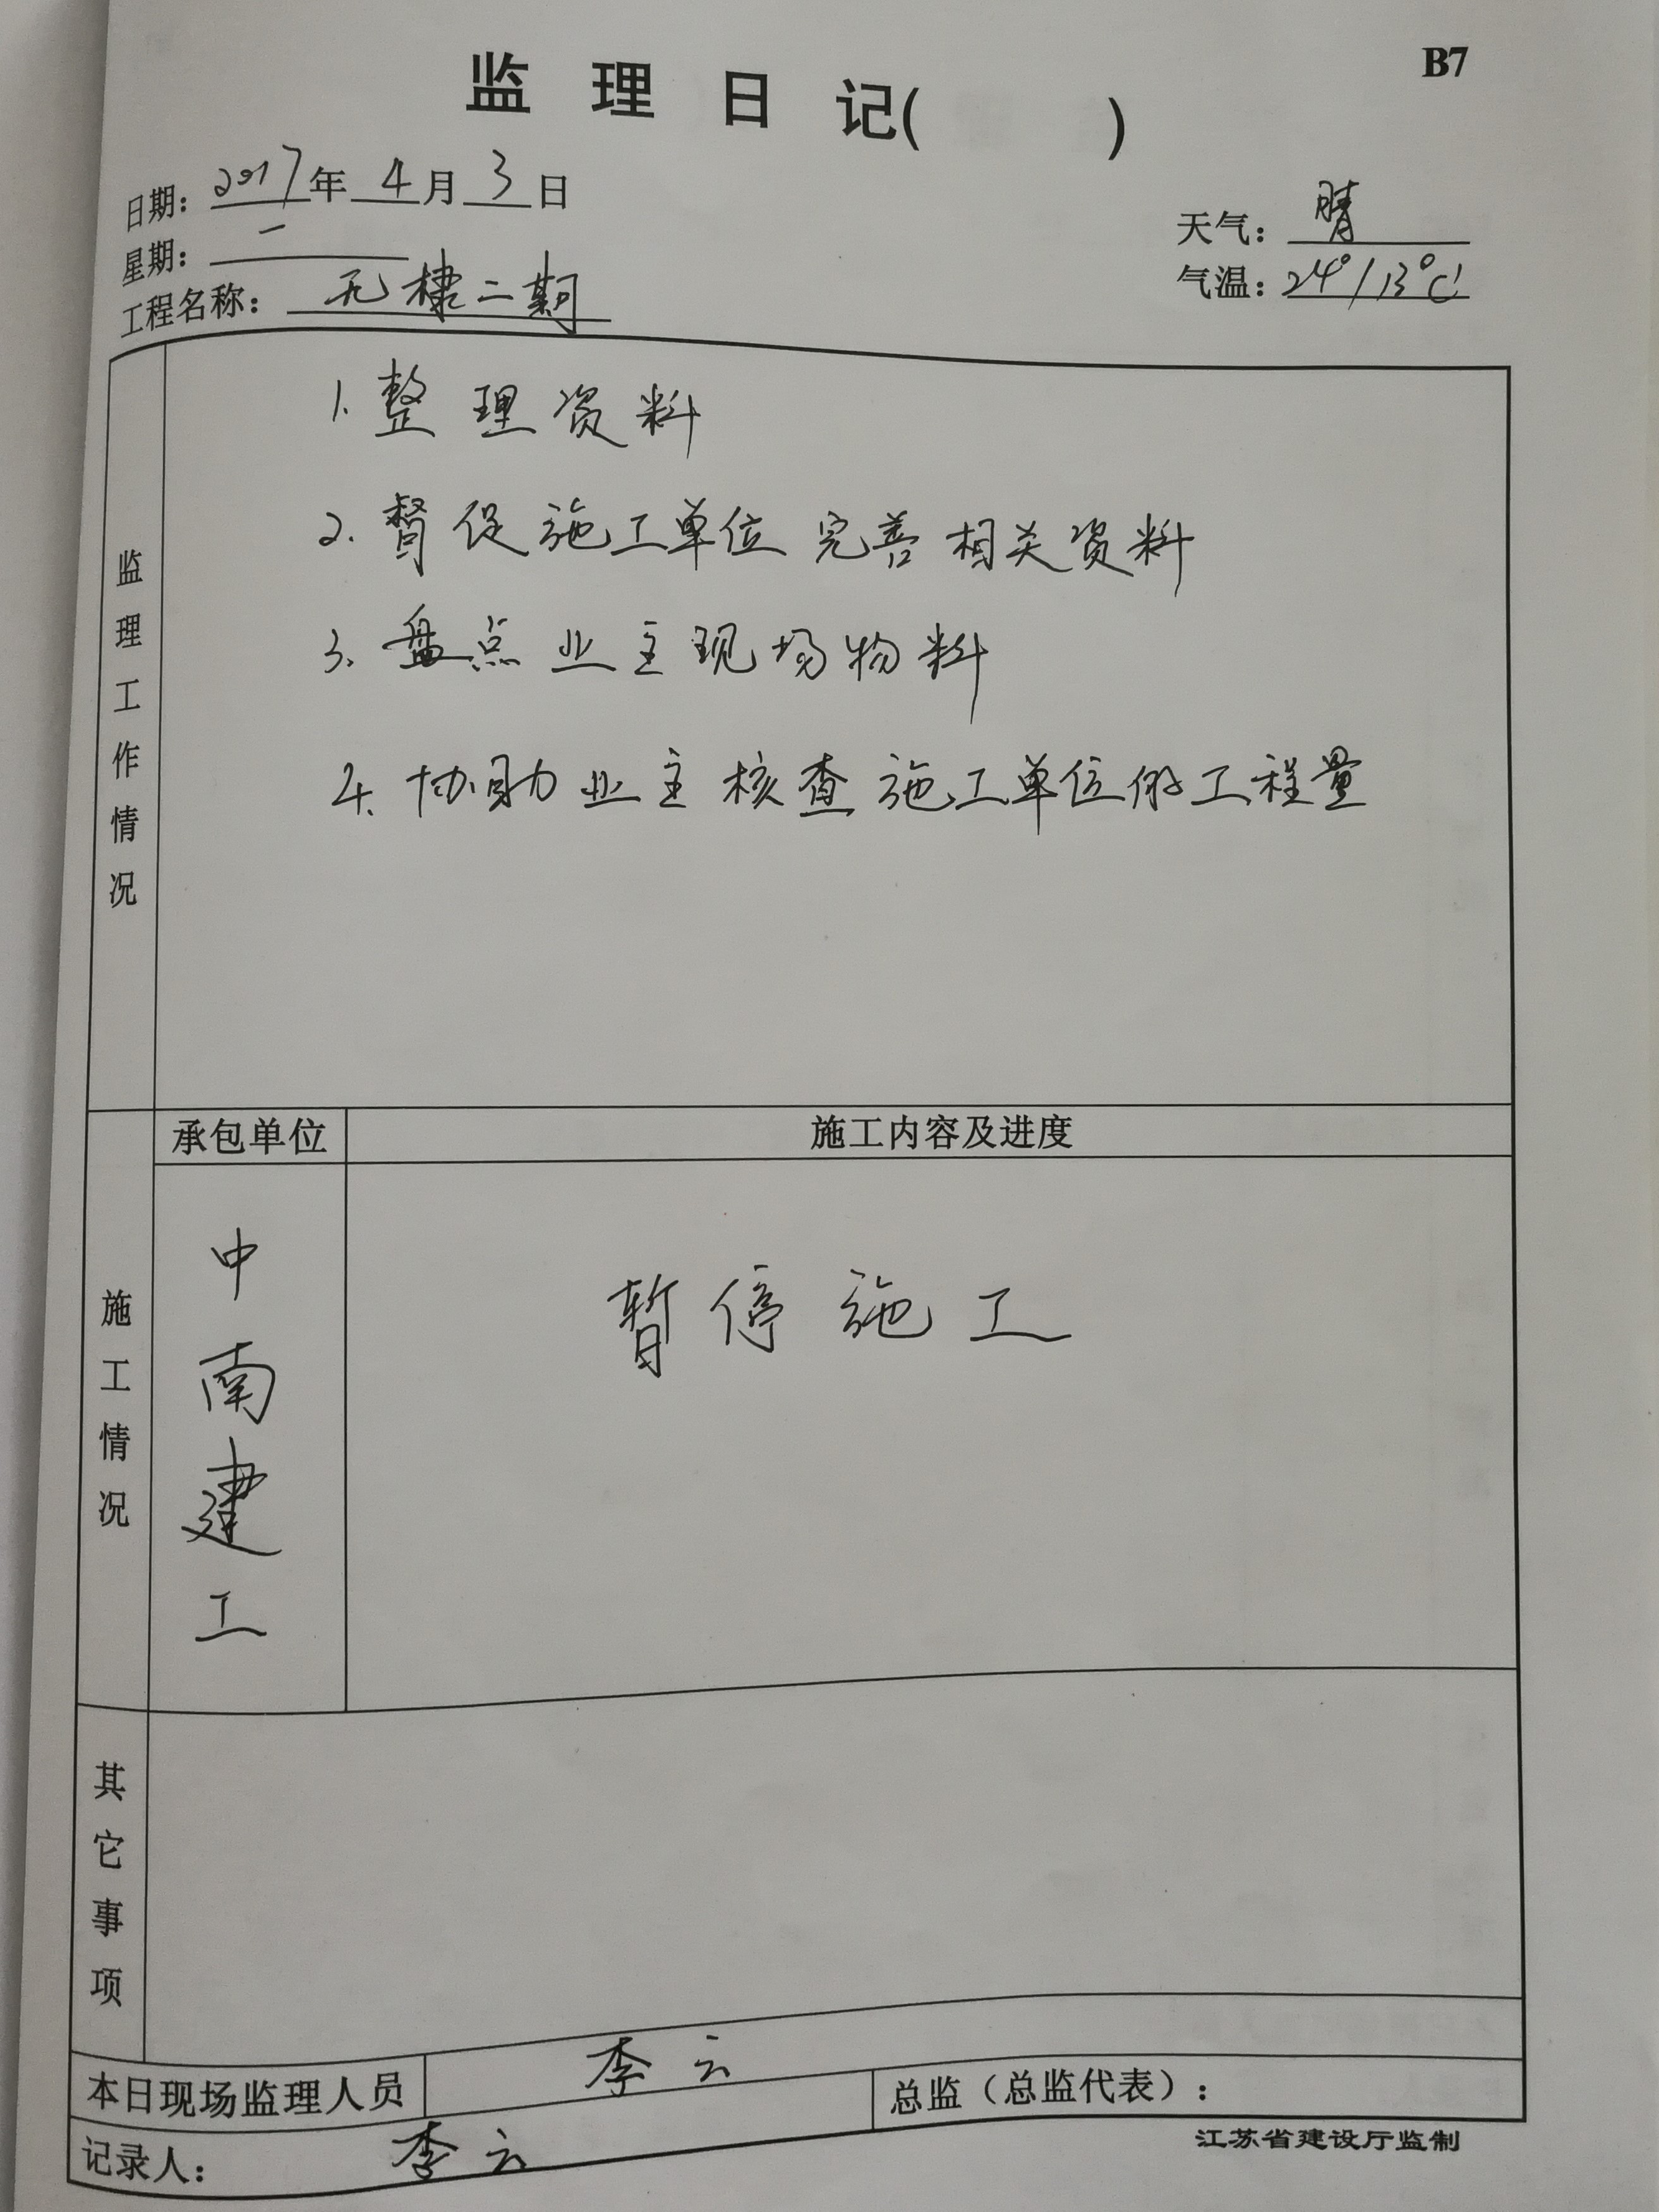 B7
监理日记( )
日期：2017年4月3日
天气：晴
星期：一
气温：24°/13℃
工程名称：无棣二期
监理工作情况
1. 整理资料
2. 督促施工单位完善相关资料
3. 盘点业主现场物料
4. 协助业主核查施工单位的工程量
承包单位
施工内容及进度
施工情况
中南建工
暂停施工
其它事项
本日现场监理人员
李云
总监（总监代表）：
记录人：李云
江苏省建设厅监制